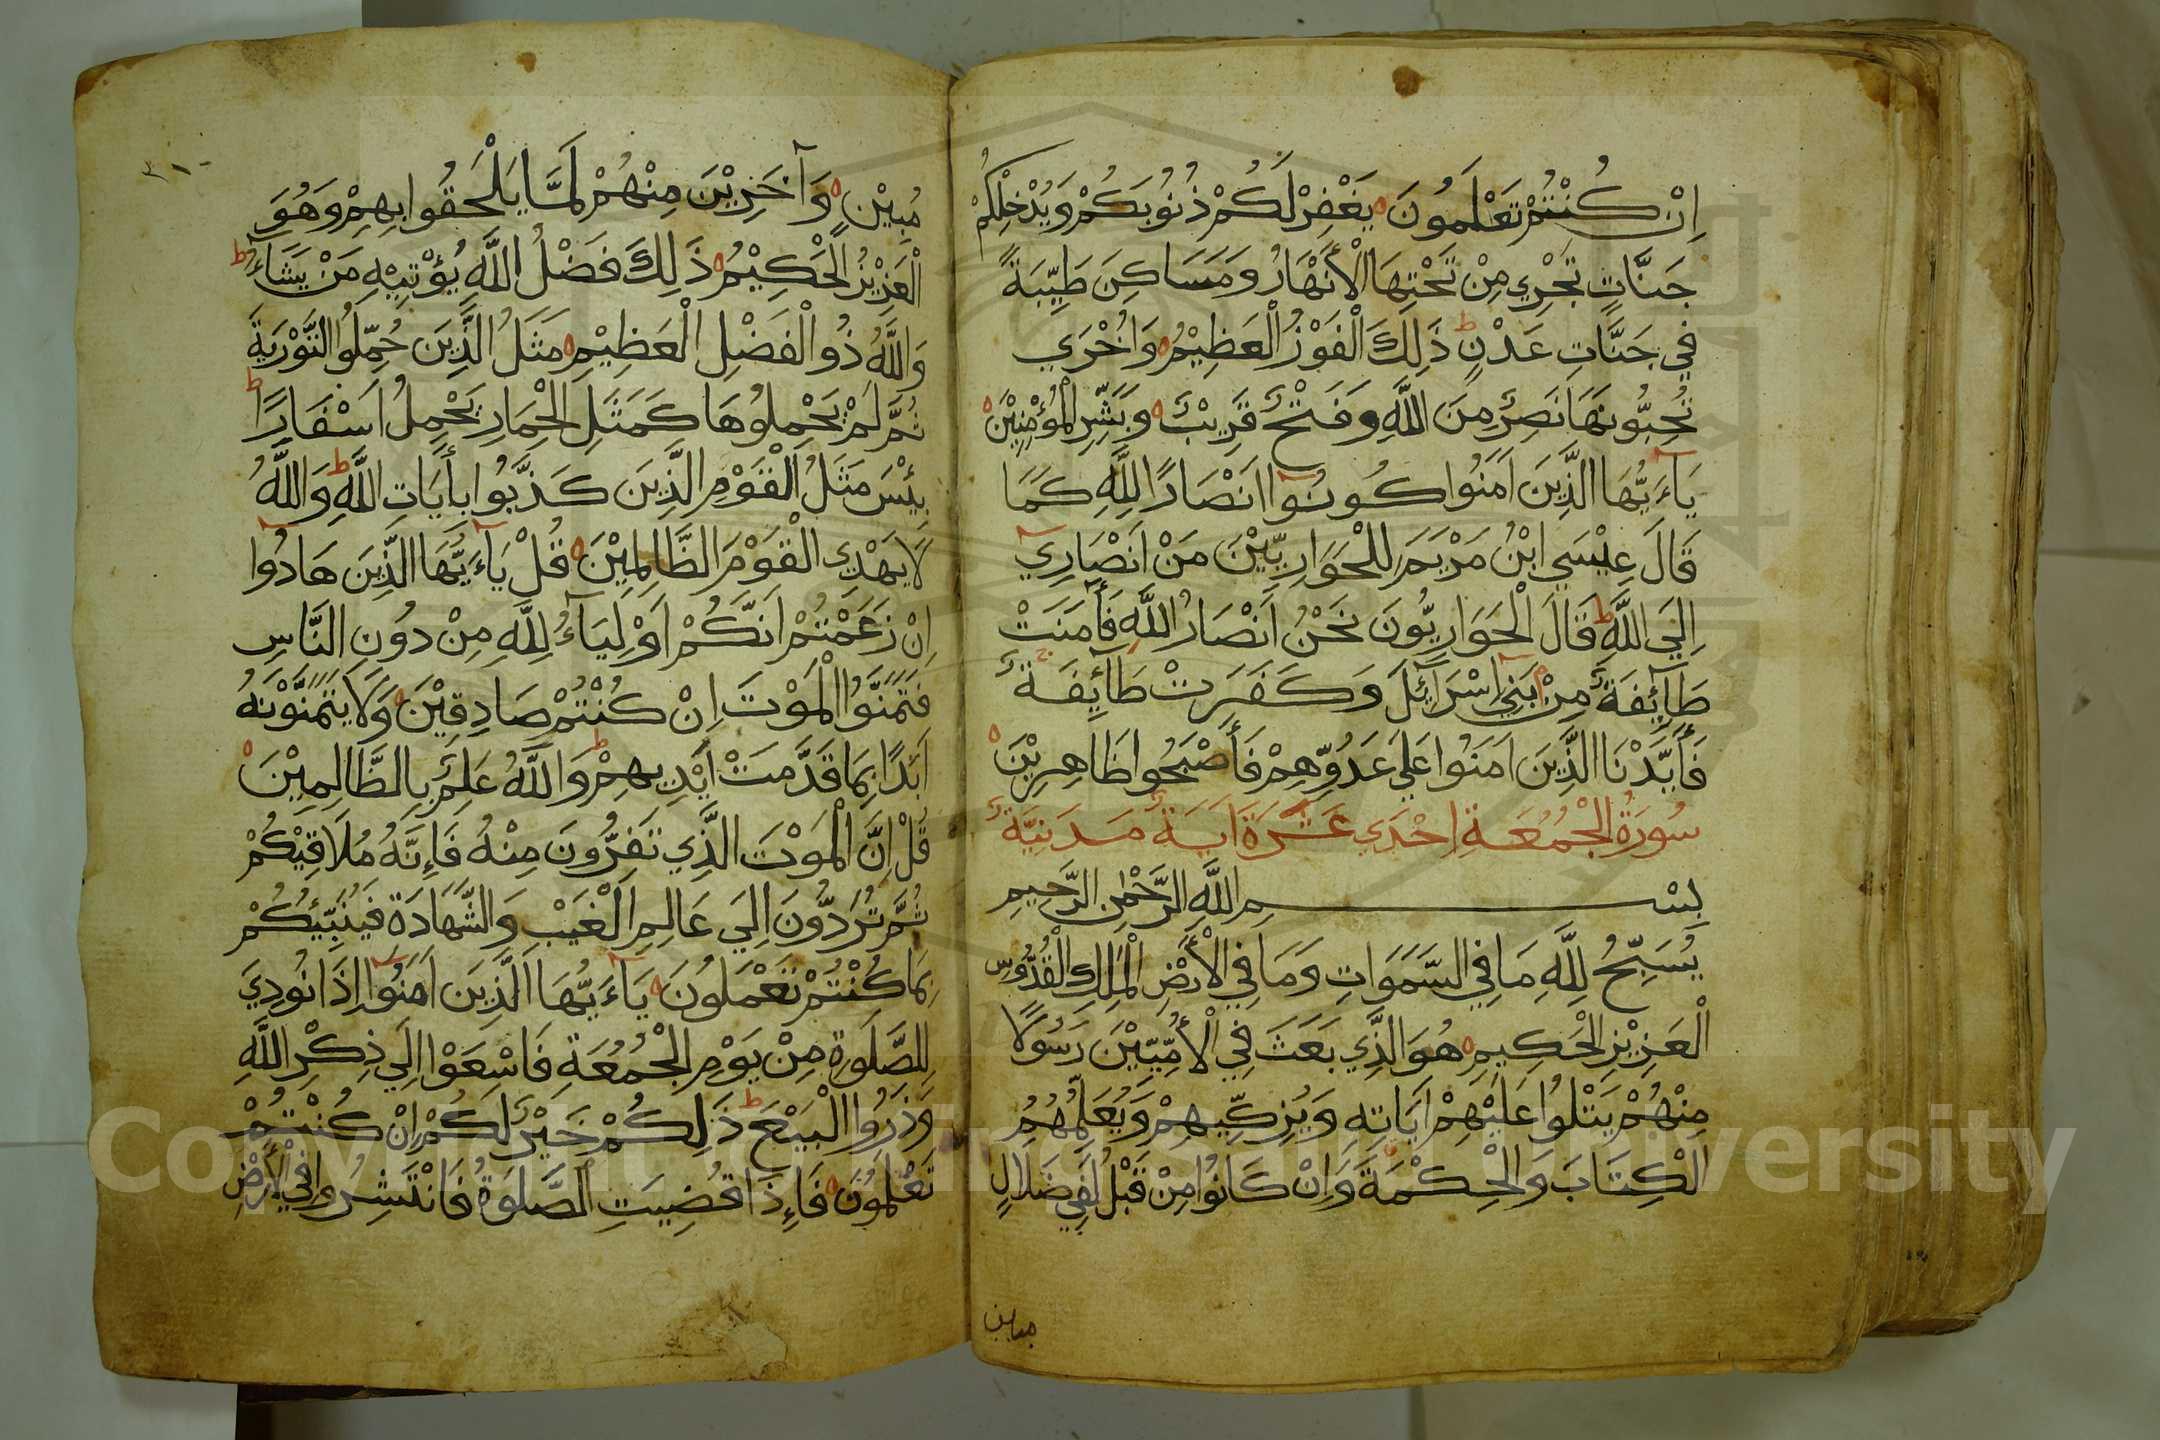 اِنْ كُنْتُمْ تَعْلَمُونَ يَغْفِرْ لَكُمْ ذُنُوبَكُمْ وَيُدْخِلْكُمْ
جَنَّاتٍ تَجْرِي مِنْ تَحْتِهَا الْأَنْهَارُ وَمَسَاكِنَ طَيِّبَةً
فِي جَنَّاتِ عَدْنٍ ط ذَلِكَ الْفَوْزُ الْعَظِيْمُ وَاُخْرَي
تُحِبُّونَهَا نَصْرٌ مِنَ اللَّهِ وَفَتْحٌ قَرِيْبٌ وَبَشِّرِ الْمُؤْمِنِيْنَ
يَآءَيُّهَا الَّذِيَن اَمَنُوا كُونُوآ اَنْصَارًا لِلَّهِ كَمَا
قَالَ عِيْسَي ابْنُ مَرْيَمَ لِلْحَوَارِيِّيْنَ مَنْ اَنْصَارِيٓ
اِلَي اللَّهِ ط قَالَ الْحَوَارِيُّونَ نَحْنُ اَنْصَارُ اللَّهِ فَأَمَنَتْ
طَآئِفَةٌ مِنْ بَنِيٓ اِسْرَآئِلَ وَكَفَرَتْ طَآئِفَةٌ ج
فَأَيَّدْنَا الَّذِيَن اَمَنُوا عَلَي عَدُوِّهِمْ فَأَصْبَحُوا ظَاهِرِيْنَ
سُورَةُ الْجُمُعَةِ اِحْدَي عَشْرَةَ اَيَةً مَدَنِيَّةٌ
بِسْمِ اللَّهِ الرَّحْمٰنِ الرَّحِيمِ
يُسَبِّحُ لِلَّهِ مَا فِي السَّمَوَاتِ وَمَا فِي الْأَرْضِ الْمَلِكِ الْقُدُّوسِ
الْعَزِيْزِ الْحَكِيمِ هُوَ الَّذِي بَعَثَ فِي الْأُمِّيِّيْنَ رَسُولًا
مِنْهُمْ يَتْلُوا عَلَيْهِمْ اَيَاتِهِ وَيُزَكِّيهِمْ وَيُعَلِّمُهُمُ
الْكِتَابَ وَالْحِكْمَةَ وَاِنْ كَانُوا مِنْ قَبْلُ لَفِي ضَلَالٍ
مبين
مُبِيْنٍ وَآخَرِيْنَ مِنْهُمْ لَمَّا يَلْحَقُوا بِهِمْ وَهُوَ
الْعَزِيْزُ الْحَكِيْمُ ذَلِكَ فَضْلُ اللَّهِ يُؤْتِيْهِ مَنْ يَشَآءُ ط
وَاللَّهُ ذُو الْفَضْلِ الْعَظِيْمِ مَثَلُ الَّذِيَن حُمِّلُوا التَّوْرَيةَ
ثُمَّ لَمْ يَحْمِلُوهَا كَمَثَلِ الْحِمَارِ يَحْمِلُ اَسْفَارًا ط
بِئْسَ مَثَلُ الْقَوْمِ الَّذِيَن كَذَّبُوا بِأَيَاتِ اللَّهِ ط وَاللَّهُ
لَا يَهْدِي الْقَوْمَ الظَّالِمِيْنَ قُلْ يَآءَيُّهَا الَّذِيَن هَادُوآ
اِنْ زَعَمْتُمْ اَنَّكُمْ اَوْلِيَآءُ لِلَّهِ مِنْ دُونِ النَّاسِ
فَتَمَنَّوُا الْمَوْتَ اِنْ كُنْتُمْ صَادِقِيْنَ وَلَا يَتَمَنَّوْنَهُ
اَبَدًا بِمَا قَدَّمَتْ اَيْدِيهِمْ ط وَاللَّهُ عَلِيمٌ بِالظَّالِمِيْنَ
قُلْ اِنَّ الْمَوْتَ الَّذِي تَفِرُّونَ مِنْهُ فَاِنَّهُ مُلَاقِيْكُمْ
ثُمَّ تُرَدُّونَ اِلَي عَالِمِ الْغَيْبِ وَالشَّهَادَةِ فَيُنَبِّئُكُمْ
بِمَا كُنْتُمْ تَعْمَلُونَ يَآءَيُّهَا الَّذِيَن اَمَنُوآ اِذَا نُودِيَ
لِلصَّلَوةِ مِنْ يَوْمِ الْجُمُعَةِ فَاسْعَوْا اِلَي ذِكْرِ اللَّهِ
وَذَرُوا الْبَيْعَ ط ذَلِكُمْ خَيْرٌ لَكُمْ اِنْ كُنْتُمْ
تَعْلَمُونَ فَاِذَا قُضِيَتِ الصَّلَوةُ فَانْتَشِرُوا فِي الْأَرْضِ